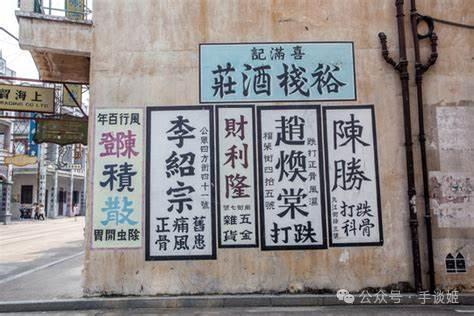 喜滿記
裕棧酒莊
陳勝
跌打
骨科
跌打正骨風濕
趙煥棠
跌打
福榮街四拾五號
財利隆
五金
雜貨
公眾四方街四十一號
李紹宗
舊患
痛風
正骨
風行百年
陳
積
散
除虫開胃
上海
TRADING CO LTD
公众号・手谈姬